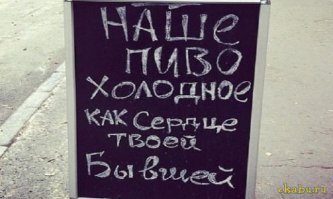 НАШЕ
ПИВО
ХОЛОДНОЕ
КАК СЕРДЦЕ
ТВОЕЙ
БЫВШЕЙ
zkabu.ru